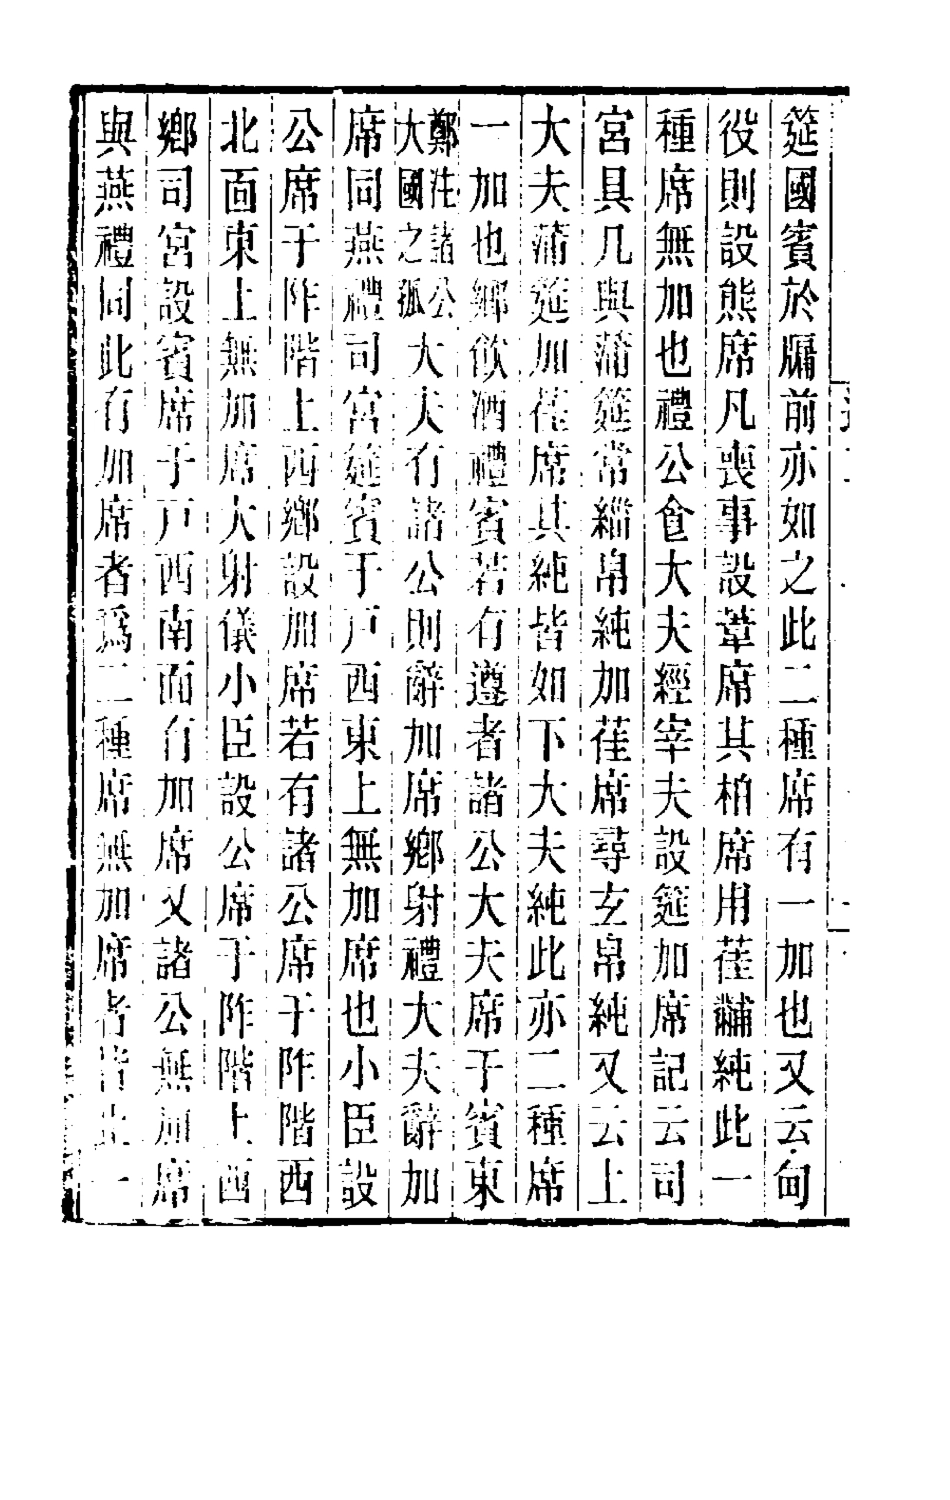 筵國賓於牖前亦如之此二種席有一加也又云甸
役則設熊席凡喪事設葦席其柏席用萑黼純此一
種席無加也禮公食大夫經宰夫設筵加席記云司
宮具几與蒲筵常緇帛純加萑席尋玄帛純又云上
大夫蒲筵加萑席其純皆如下大夫純此亦二種席
一加也鄉飲酒禮賓若有遵者諸公大夫席于賓東
鄭注諸公
大國之孤
大夫有諸公則辭加席鄉射禮大夫辭加
席同燕禮司宮筵賓于戶西東上無加席也小臣設
公席于阼階上西鄉設加席若有諸公席于阼階西
北面東上無加席大射儀小臣設公席于阼階上西
鄉司宮設賓席于戶西南面有加席又諸公無加席
與燕禮同此有加席者爲二種席無加席者皆止一